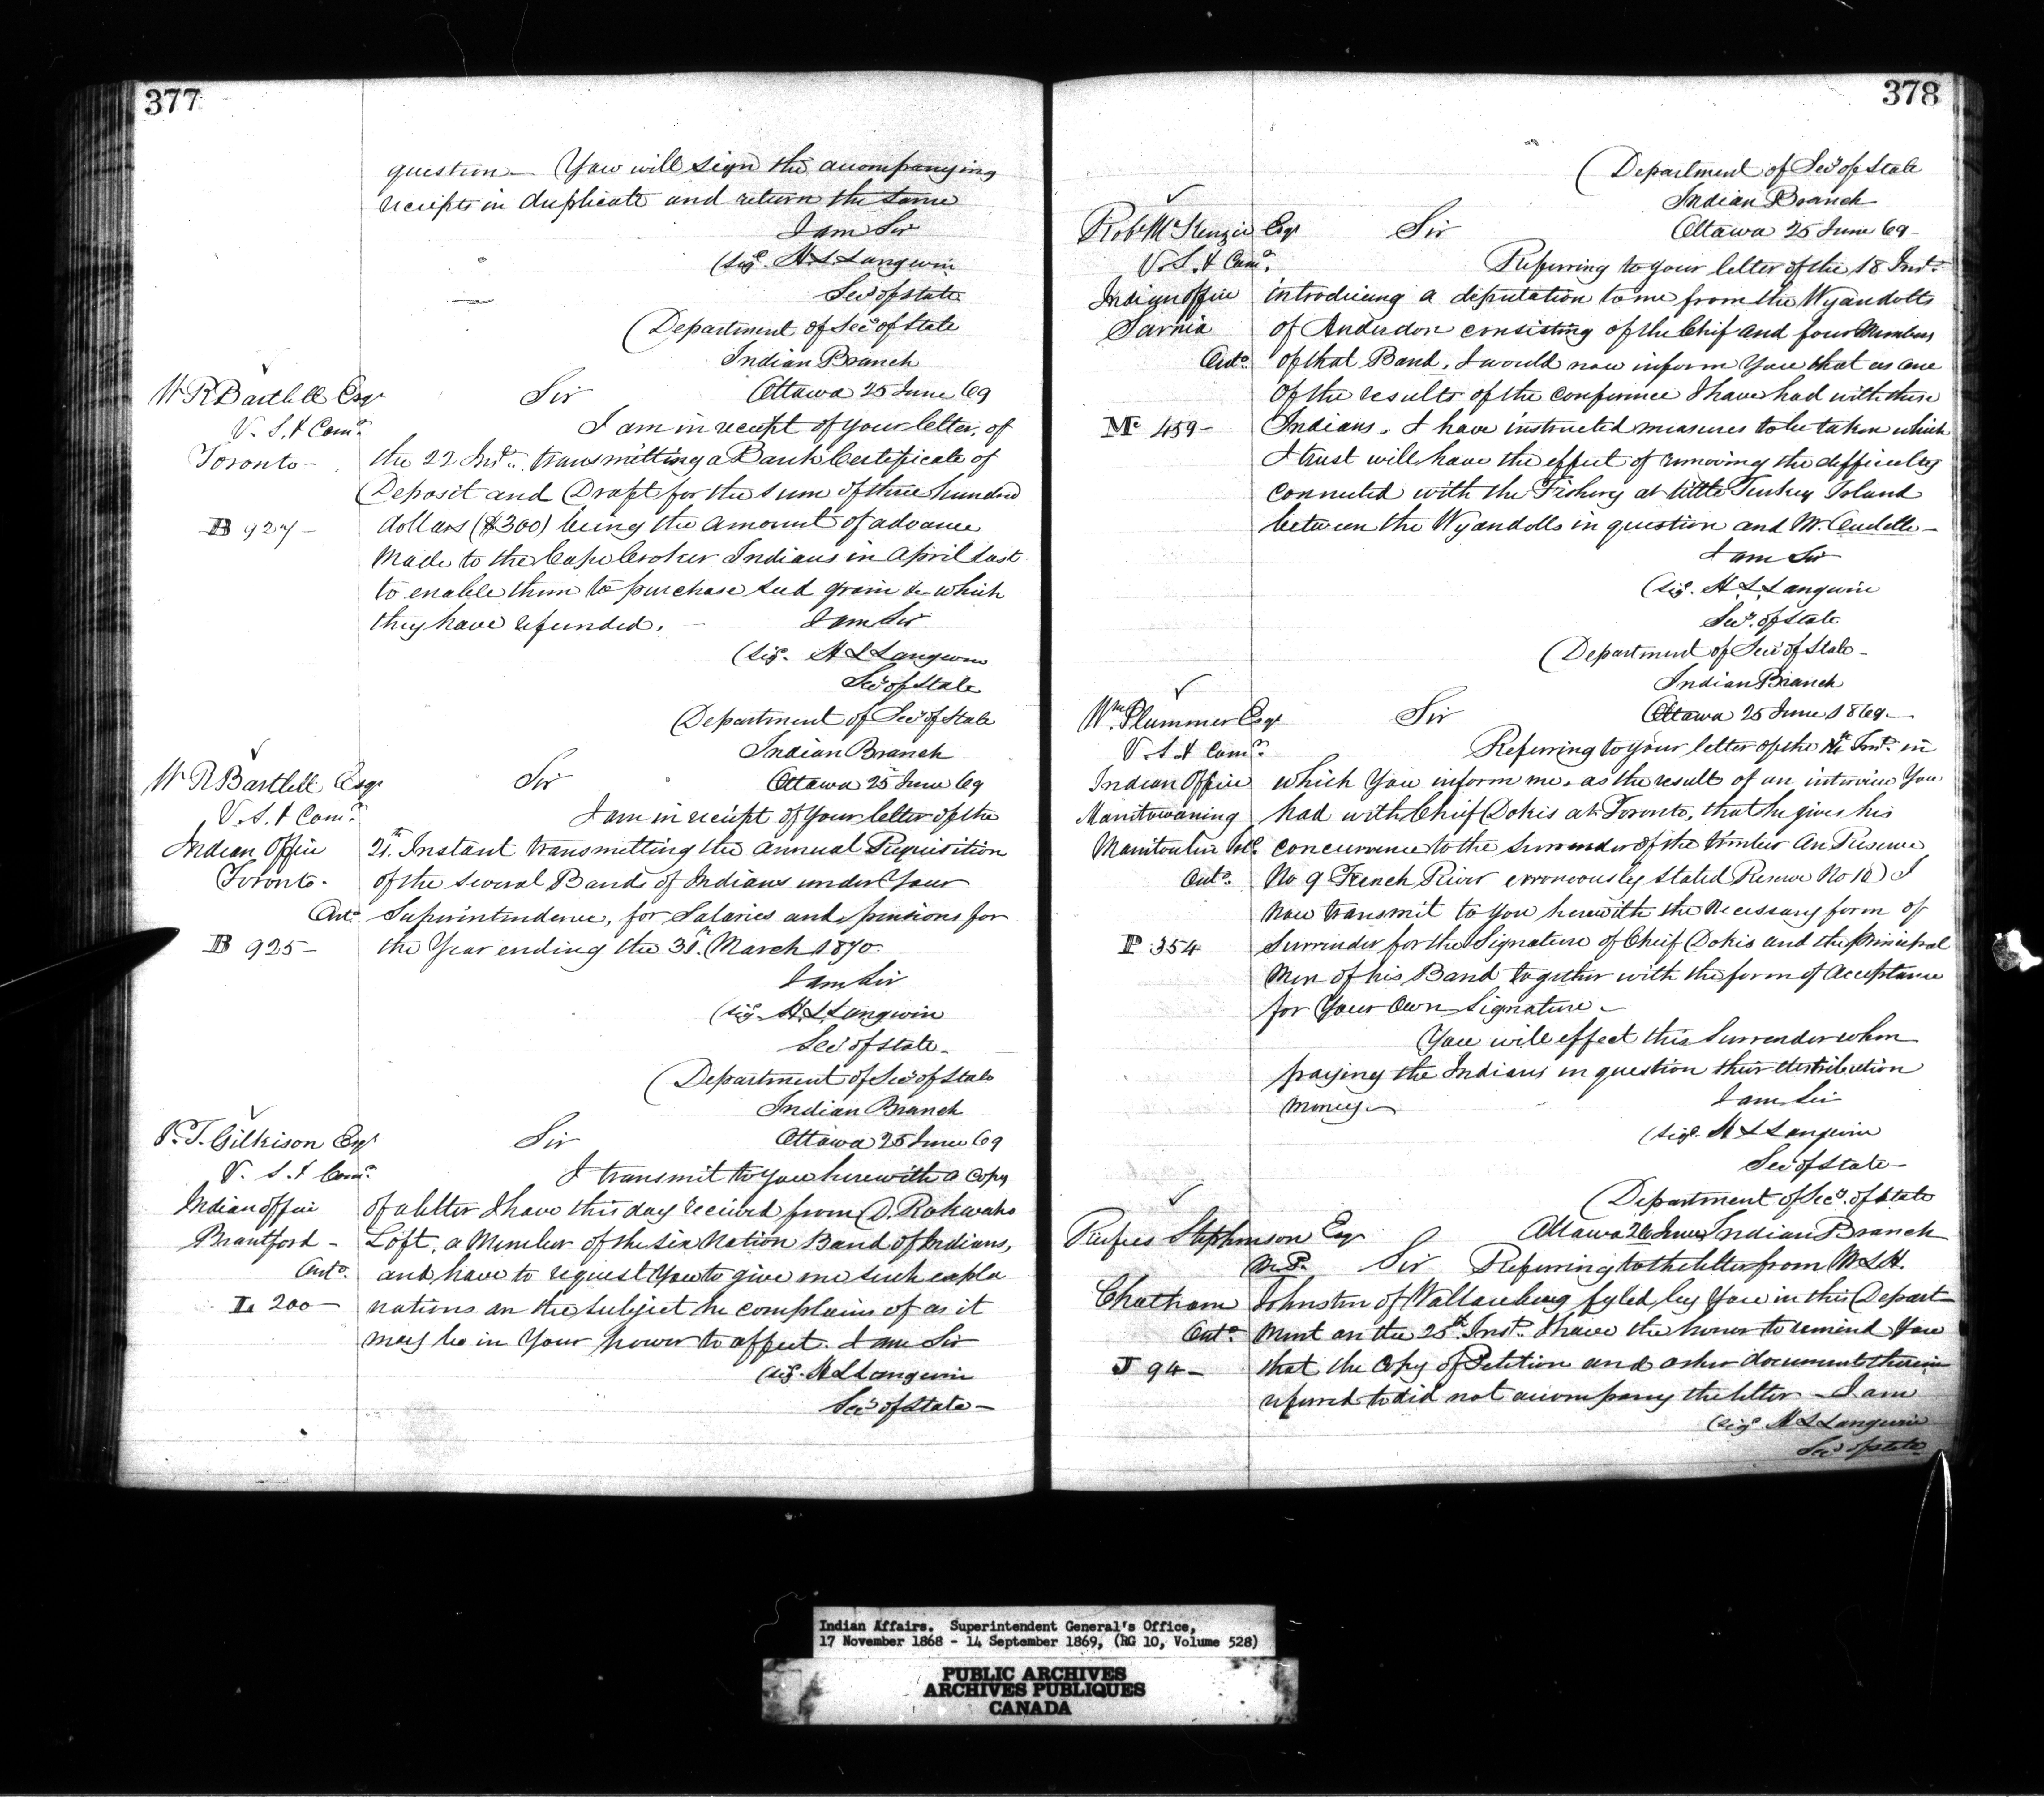 377
question — You will sign the accompanying
receipts in duplicate and return the same
I am Sir
(Sigd. H. L. Langevin
Secy of State
Department of Secy of State
Indian Branch
W R Bartlett Esqr Sir Ottawa 25 June 69
V. S. & Comr. I am in receipt of your letter of
Toronto — the 22 Inst. transmitting a Bank Certificate of
Deposit and Draft for the sum of three hundred
B 927 — dollars ($300) being the amount of advance
Made to the Cape Croker Indians in April last
to enable them to purchase seed grain &c which
they have refunded. I am Sir
(Sigd. H L Langevin
Secy of State
Department of Secy of State
Indian Branch
W R Bartlett Esqr Sir Ottawa 25 June 69
V. S. & Comr. I am in receipt of Your letter of the
Indian Office 21st. Instant transmitting the annual Requisition
Toronto. of the several Bands of Indians under Your
Onto. Superintendence, for Salaries and pensions for
B 925 — the Year ending the 31st. March 1870.
I am Sir
(Sigd. H. L. Langevin
Secy of State.
Department of Secy of State
Indian Branch
J. T. Gilkison Esqr Sir Ottawa 25 June 69
V. S. & Comr. I transmit to you herewith a Copy
Indian Office of a letter I have this day received from D. Rokwaho
Brantford — Loft, a Member of the Six Nation Band of Indians,
Onto. and have to request You to give me such expla
L 200 — nations on the subject he complains of as it
may be in Your power to affect. I am Sir
(Sigd. H L Langevin
Secy of State —
378
Department of Secy of State
Indian Branch
Robt McKenzie Esqr Sir Ottawa 25 June 69 —
V. S. & Comr. Referring to your letter of the 18 Inst.
Indian Office introducing a deputation to me from the Wyandotts
Sarnia of Anderdon consisting of the Chief and four Members
Onto. of that Band, I would now inform You that as one
of the results of the conference I have had with these
Mc 459 — Indians. I have instructed measures to be taken which
I trust will have the effect of removing the difficulty
connected with the Fishery at little Turkey Island
between the Wyandotts in question and Mr.
I am Sir
(Sigd. H. L. Langevin
Secy. of State
Department of Secy of State —
Indian Branch
Wm. Plummer Esqr Sir Ottawa 25 June 1869 —
V. S. & Comr. Referring to your letter of the Inst. in
Indian Office which You inform me, as the result of an interview You
Manitowaning had with Chief Dokis at Toronto, that he gives his
Manitoulin Isld. concurrence to the surrender of the timber on Reserve
Onto. No 9 French River erroneously stated Reserve No 10) I
now transmit to you herewith the necessary form of
P 354 Surrender for the Signature of Chief Dokis and the principal
Men of his Band together with the form of Acceptance
for Your Own Signature —
You will effect this Surrender when
paying the Indians in question their distribution
Money — I am Sir
(Sigd. H L Langevin
Secy of State —
Department of Secy. of State
Rufus Stephenson Esqr Ottawa 26 June Indian Branch
M.P. Sir Referring to the letter from
Chatham Johnston of Wallaceburg fyled by You in this Depart-
Onto. ment on the 25th. Inst. I have the honor to remind You
J 94 — that the Copy of Petition and other documents therein
referred to did not accompany the letter — I am
(Sigd H L Langevin
Secy of State
Indian Affairs. Superintendent General's Office,
17 November 1868 - 14 September 1869, (RG 10, Volume 528)
PUBLIC ARCHIVES
ARCHIVES PUBLIQUES
CANADA